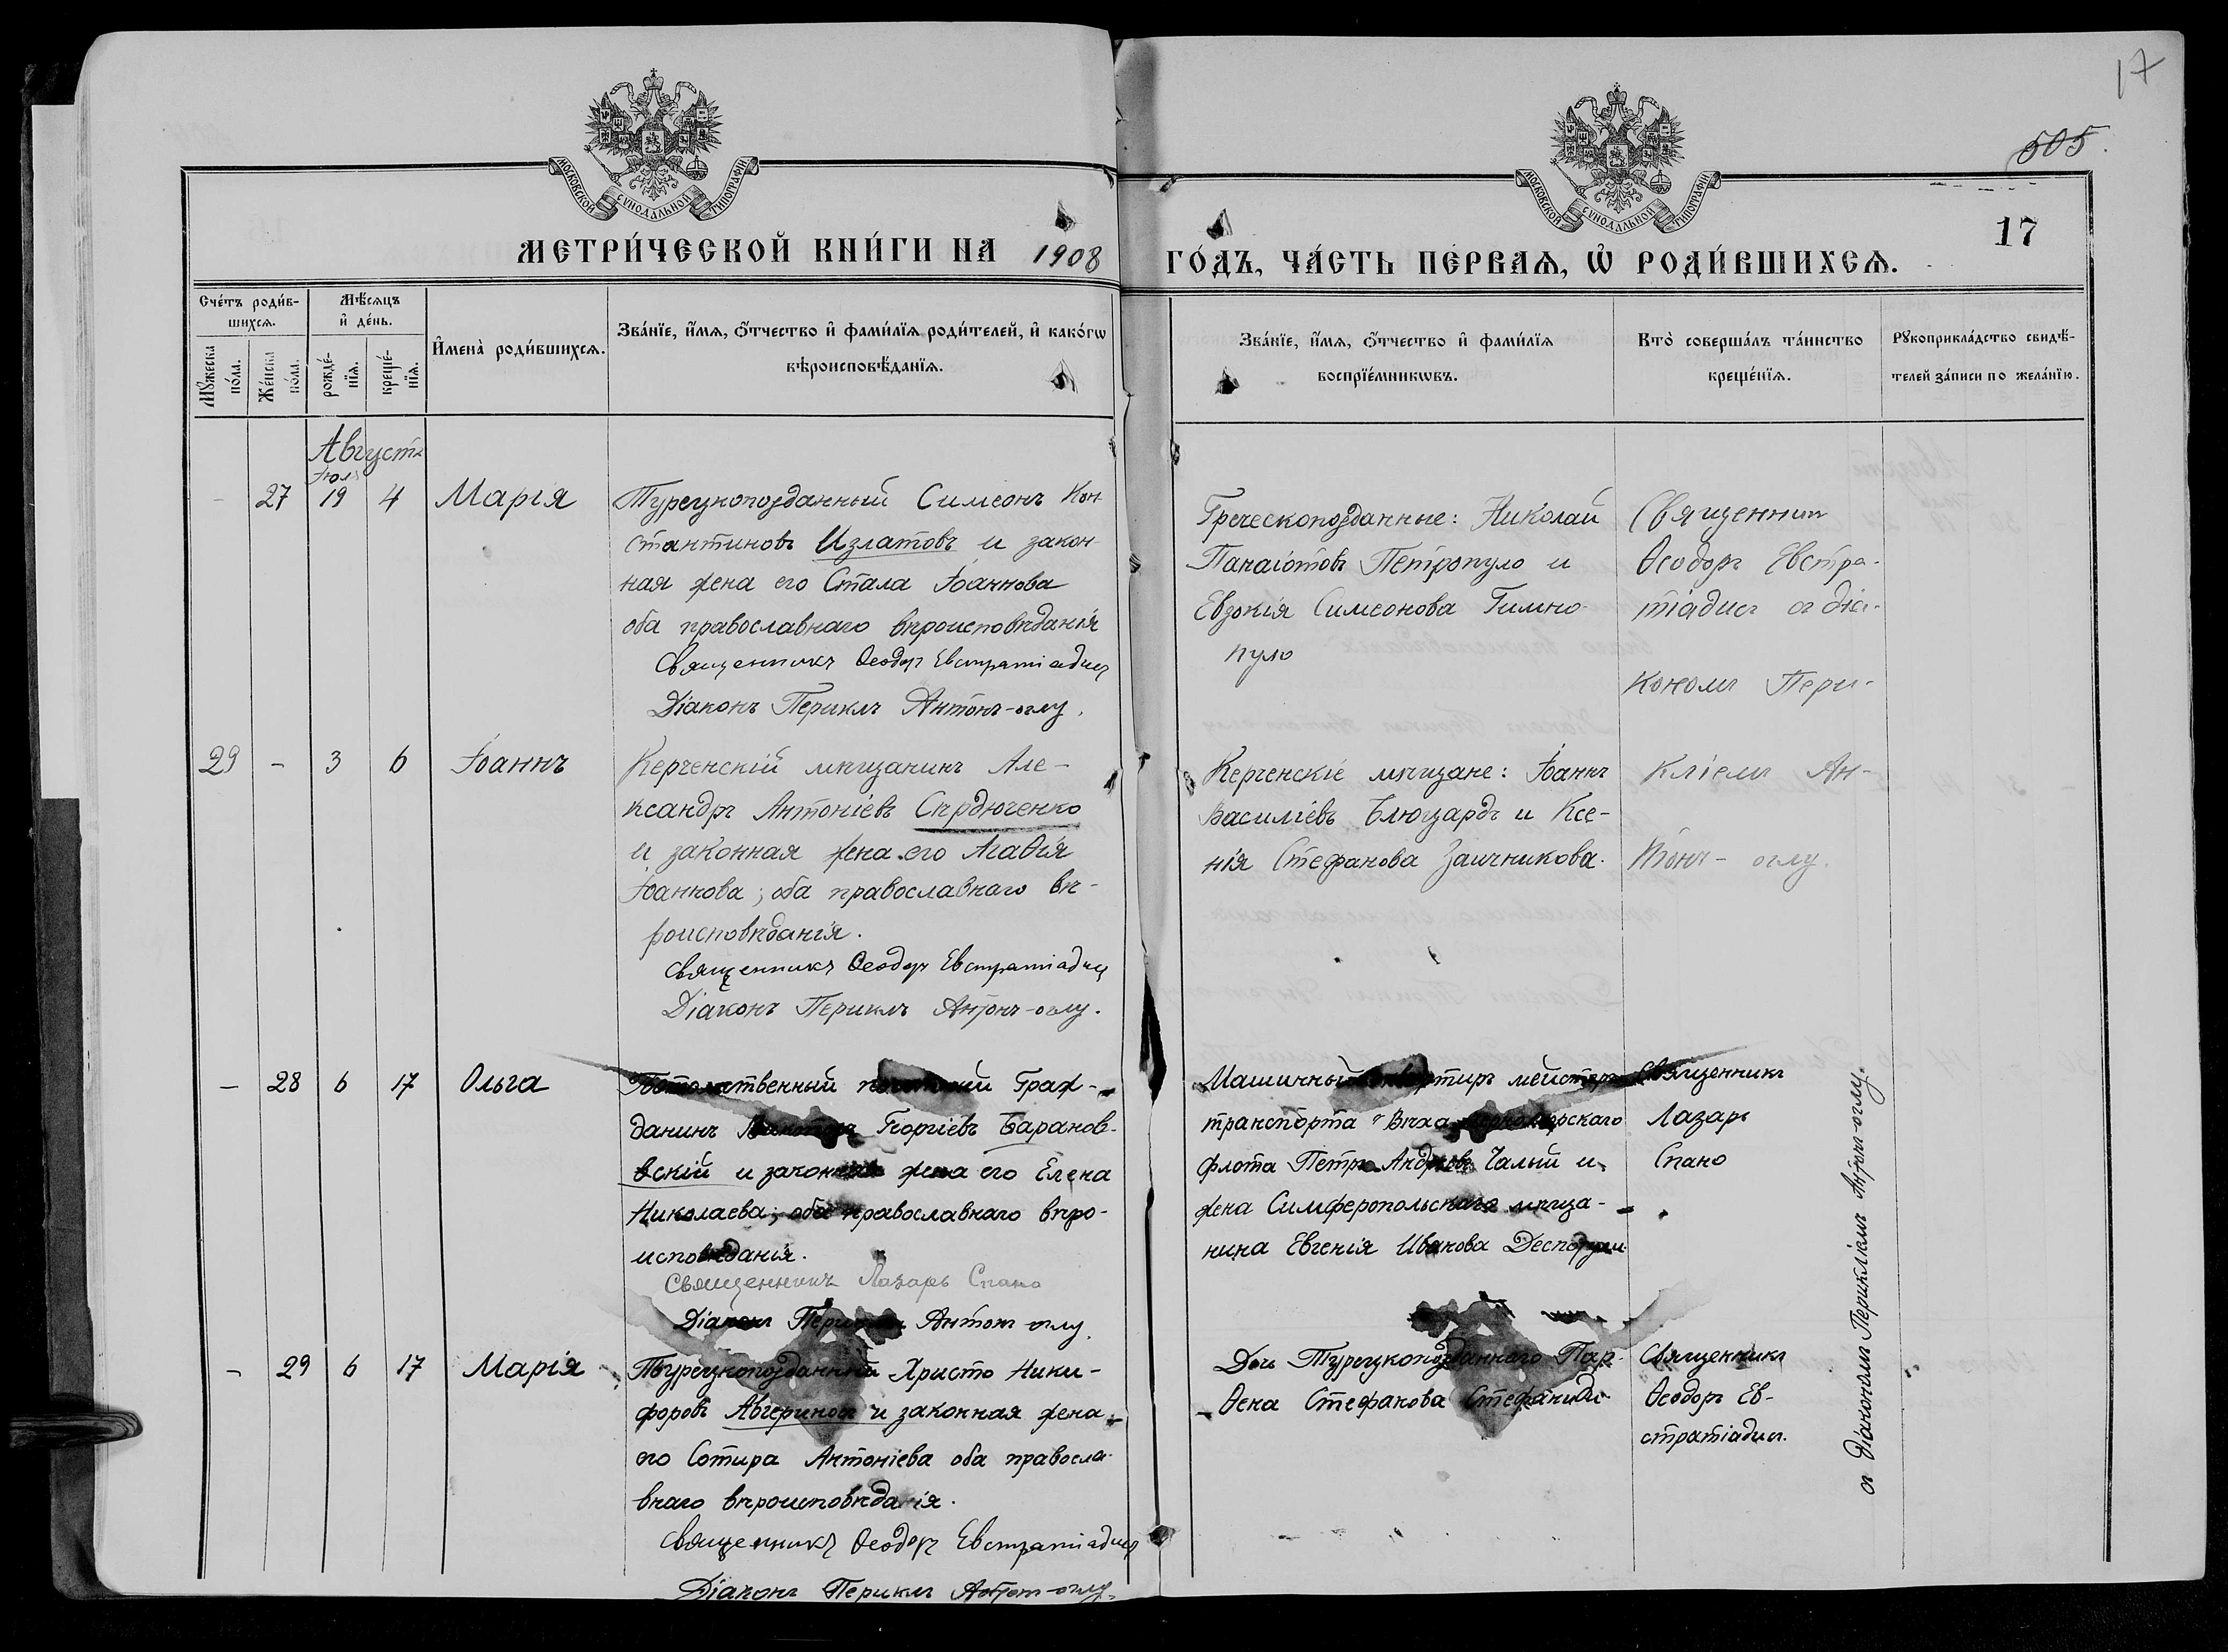 17
505.
МОСКОВСКОЙ СѴНОДАЛЬНОЙ ТИПОГРАФІИ
МОСКОВСКОЙ СѴНОДАЛЬНОЙ ТИПОГРАФІИ
17
МЕТРИ́ЧЕСКОЙ КНИ́ГИ НА 1908
ГО́ДЪ, ЧА́СТЬ ПЕ́РВАѦ, Ѡ҆ РОДИ́ВШИХСѦ.
Сче́тъ роди́в-
шихсѧ.
Мꙋ́жеска по́ла.
Же́нска по́ла.
Мѣ́сѧцъ
и҆ де́нь.
рожде́-
нїѧ.
креще́-
нїѧ.
И҆мена̀ роди́вшихсѧ.
Зва́нїе, и҆́мѧ, ѻ҆́тчество и҆ фами́лїѧ роди́телей, и҆ како́гѡ
вѣроисповѣ́данїѧ.
Зва́нїе, и҆́мѧ, ѻ҆́тчество и҆ фами́лїѧ
воспрїе́мникѡвъ.
Кто̀ соверша́лъ та́инство
креще́нїѧ.
Рꙋкоприкла́дство свидѣ́-
телей за́писи по жела́нїю.
Августъ
Іюля
- 27 19 4 Марія
Турецкоподданный Симеонъ Кон-
стантиновъ Излатовъ и закон-
ная жена его Стала Іоаннова
оба православнаго вѣроисповѣданія
Священникъ Ѳеодоръ Евстратіадисъ
Діаконъ Периклъ Антонъ-оглу.
Греческоподданные: Николай
Панаіотовъ Петропуло и
Евдокія Симеонова Гимно-
пуло
Священник
Ѳеодоръ Евстра-
тіадисъ съ діа-
кономъ Пери-
29 - 3 6 Іоаннъ
Керченскій мѣщанинъ Але-
ксандръ Антоніевъ Сѣрдюченко
и законная жена его Агаѳія
Іоаннова; оба православнаго вѣ-
роисповѣданія.
Священникъ Ѳеодоръ Евстратіадис
Діаконъ Периклъ Антонъ-оглу.
Керченскіе мѣщане: Іоаннъ
Василіевъ Блюцардъ и Ксе-
нія Стефанова Заичникова.
кліемъ Ан-
тонъ-оглу.
- 28 6 17 Ольга
Потомственный Граж-
данинъ Георгіевъ Баранов-
вскій и законная жена его Елена
Николаева; оба православнаго вѣро-
исповѣданія.
Священникъ Лазарь Спано
Діаконъ Периклъ Антонъ-оглу.
Машинный мейстеръ
транспорта "Вѣха Черноморскаго
флота Петръ Андреевъ Чалый и
жена Симферопольскаго мѣща-
нина Евгенія Иванова
Священникъ
Лазарь
Спано
- 29 6 17 Марія
Турецкоподданный Христо Ники-
форовъ Авгериносъ и законная жена
его Сотира Антоніева оба правосла-
внаго вѣроисповѣданія.
Священникъ Ѳеодоръ Евстратіадис
Діаконъ Периклъ Антонъ-оглу.
Дочь Турецкоподданнаго Пар-
ѳена Стефанова Стефаниди
Священникъ
Ѳеодоръ Ев-
стратіадисъ.
съ діакономъ Перикліемъ Антонъ-оглу.